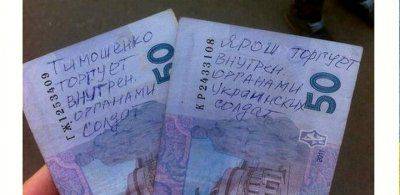 ТИМОШЕНКО
ТОРГУЕТ
ВНУТРЕН.
ОРГАНАМИ
СОЛДАТ
50
ГЖ1253409
ЯРОШ ТОРГУЕТ
ВНУТРЕН.
ОРГАНАМИ
УКРАИНСКИХ
СОЛДАТ
50
КР2433108
2011